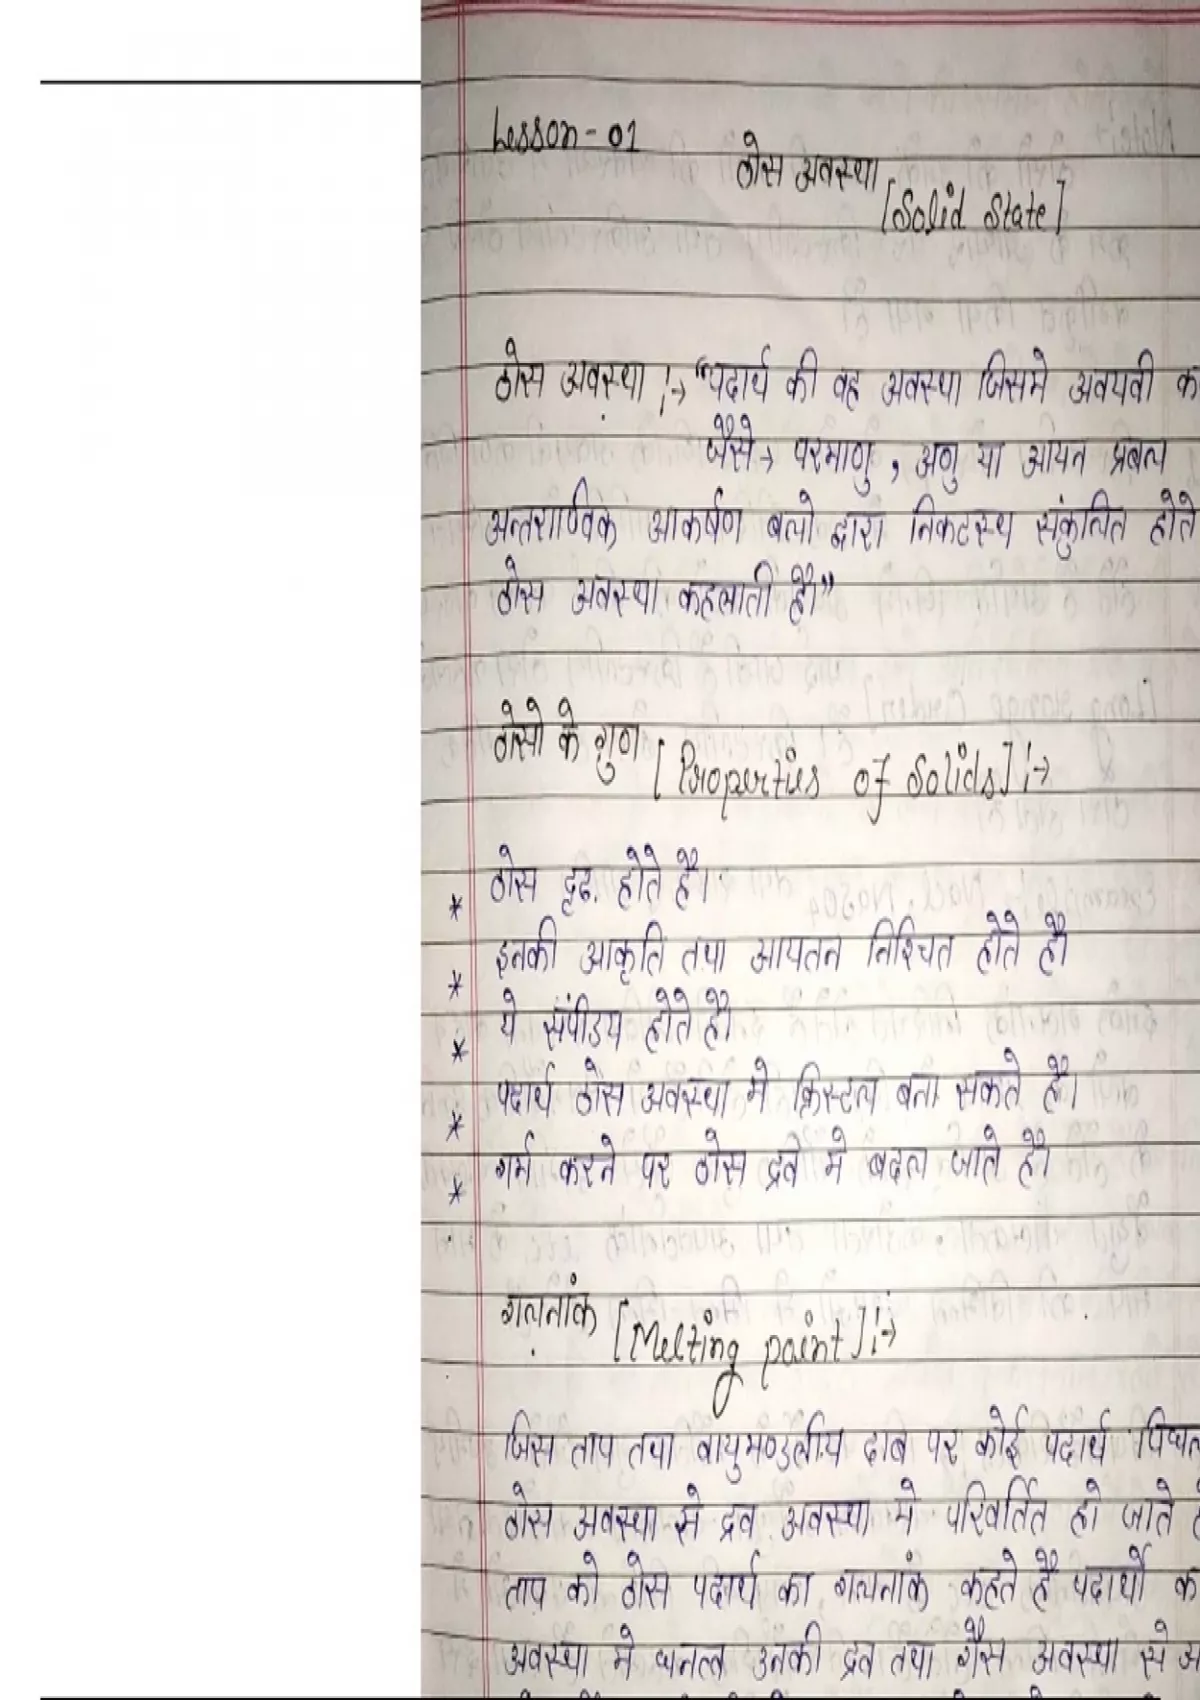 Lesson - 01
ठोस अवस्था
[Solid State]
ठोस अवस्था :→ "पदार्थ की वह अवस्था जिसमे अवयवी क
जैसे→ परमाणु, अणु या आयन प्रबल
अन्तराण्विक आकर्षण बलो द्वारा निकटस्थ संकुलित होते
ठोस अवस्था कहलाती है।"
ठोसो के गुण
[Properties of Solids] :→
* ठोस दृढ. होते है।
* इनकी आकृति तथा आयतन निश्चित होते है।
* ये संपीडय होते है।
* पदार्थ ठोस अवस्था मे क्रिस्टल बना सकते है।
* गर्म करने पर ठोस द्रव मे बदल जाते है।
गलनांक [Melting point] :→
जिस ताप तथा वायुमण्डलीय दाब पर कोई पदार्थ पिघल
ठोस अवस्था से द्रव अवस्था मे परिवर्तित हो जाते
ताप को ठोस पदार्थ का गलनांक कहते है पदार्थो क
अवस्था मे घनत्व उनकी द्रव तथा गैस अवस्था से अ